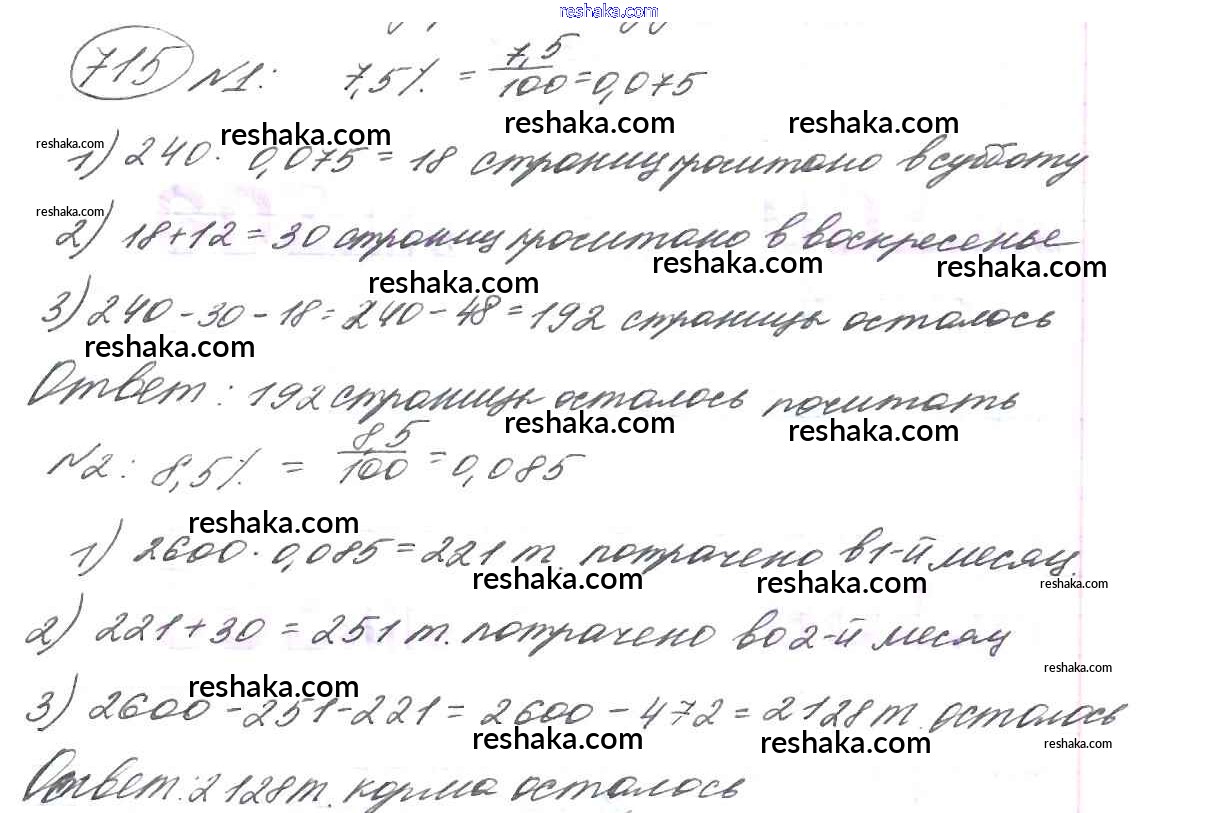 reshaka.com
715 №1: 7,5% = 7,5/100 = 0,075
reshaka.com reshaka.com reshaka.com reshaka.com
1) 240 · 0,075 = 18 страниц прочитано в субботу
reshaka.com
2) 18+12 = 30 страниц прочитано в воскресенье
reshaka.com reshaka.com reshaka.com
3) 240 - 30 - 18 = 240 - 48 = 192 страницы осталось
reshaka.com
Ответ: 192 страницы осталось почитать
reshaka.com reshaka.com
№2: 8,5% = 8,5/100 = 0,085
reshaka.com
1) 2600 · 0,085 = 221 т. потрачено в 1-й месяц.
reshaka.com reshaka.com reshaka.com
2) 221 + 30 = 251 т. потрачено во 2-й месяц
reshaka.com reshaka.com
3) 2600 - 251 - 221 = 2600 - 472 = 2128 т. осталось
reshaka.com reshaka.com reshaka.com
Ответ: 2128 т. корма осталось